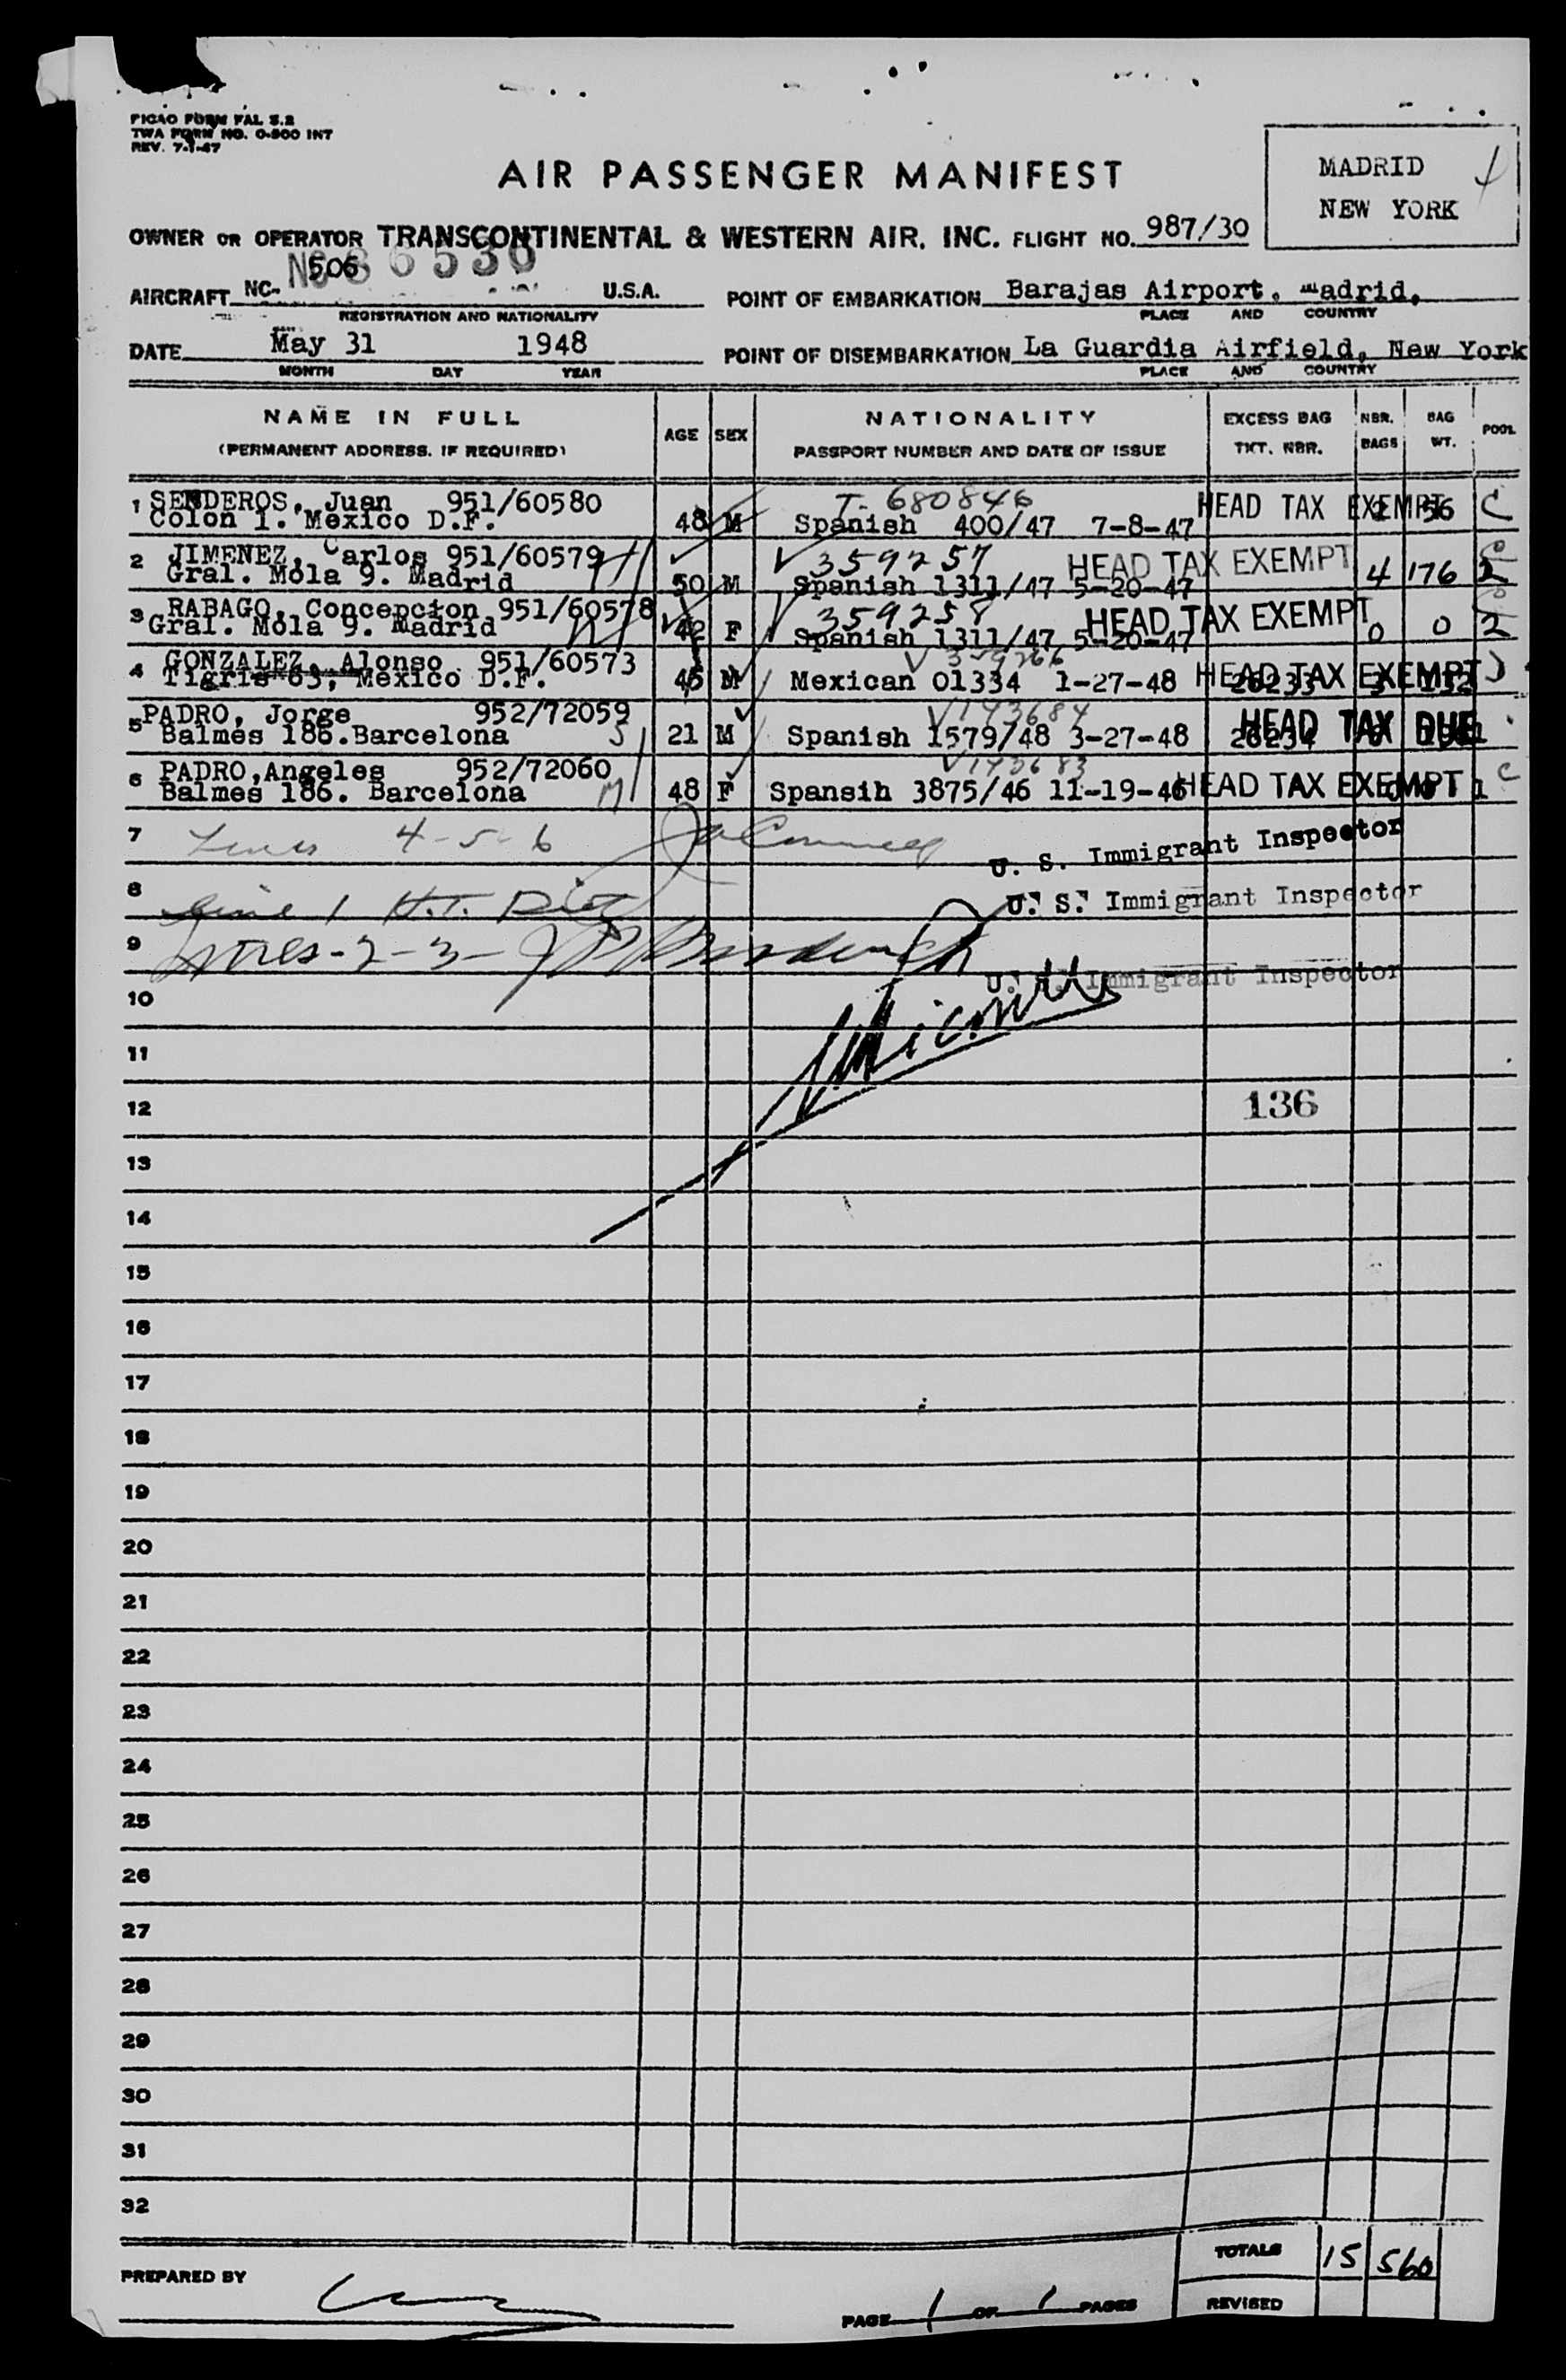 PICAO FORM FAL S.2
TWA FORM NO. O-800 INT
REV. 7-1-47
AIR PASSENGER MANIFEST
MADRID
NEW YORK
OWNER OR OPERATOR TRANSCONTINENTAL & WESTERN AIR, INC. FLIGHT NO. 987/30
AIRCRAFT NC- 506 U.S.A. POINT OF EMBARKATION Barajas Airport. Madrid.
REGISTRATION AND NATIONALITY PLACE AND COUNTRY
DATE May 31 1948 POINT OF DISEMBARKATION La Guardia Airfield, New York
MONTH DAY YEAR PLACE AND COUNTRY
NAME IN FULL AGE SEX NATIONALITY EXCESS BAG NBR. BAG POOL
(PERMANENT ADDRESS. IF REQUIRED) PASSPORT NUMBER AND DATE OF ISSUE TKT. NBR. BAGS WT.
1 SENDEROS, Juan 951/60580 T-680846 HEAD TAX EXEMPT 56 C
Colon 1. Mexico D.F. 48 M Spanish 400/47 7-8-47
2 JIMENEZ, Carlos 951/60579 V 359257 HEAD TAX EXEMPT 4 176 2
Gral. Mola 9. Madrid 50 M Spanish 1311/47 5-20-47
3 RABAGO, Concepcion 951/60578 V 359258 HEAD TAX EXEMPT 0 0 2
Gral. Mola 9. Madrid 42 F Spanish 1311/47 5-20-47
4 GONZALEZ, Alonso 951/60573 HEAD TAX EXEMPT
Tigris 63, Mexico D.F. 45 M Mexican 01334 1-27-48 26233
5 PADRO, Jorge 952/72059 V 143684 HEAD TAX DUE
Balmes 186. Barcelona 21 M Spanish 1579/48 3-27-48 26234 1
6 PADRO, Angeles 952/72060 V 143683 HEAD TAX EXEMPT C
Balmes 186. Barcelona 48 F Spansih 3875/46 11-19-46 1
7 Lines 4-5-6 U. S. Immigrant Inspector
8 Line 1 H.T. U. S. Immigrant Inspector
9 Lines-2-3- U. S. Immigrant Inspector
10
11
12 136
13
14
15
16
17
18
19
20
21
22
23
24
25
26
27
28
29
30
31
32
TOTALS 15 560
PREPARED BY PAGE 1 OF 1 PAGES REVISED